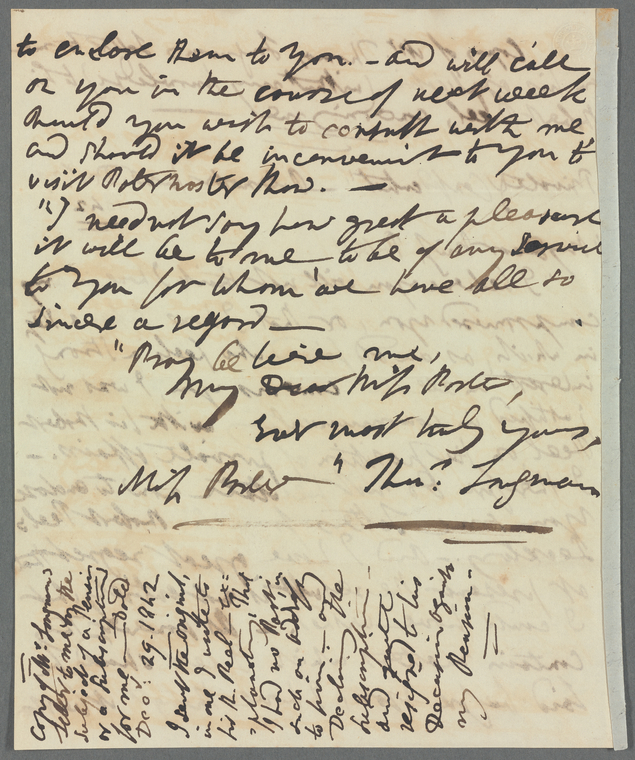 to enclose them to you. - and will call
on you in the course of next week
should you wish to consult with me
and should it be inconvenient to you to
visit Paternoster Row. —
"I need not say how great a pleasure
it will be to me to be of any service
to you for whom we have all so
sincere a regard —
"Pray believe me,
my Dear Miss Porter,
Ever most truly yours,
Miss Porter " Thos. Longman
Copy of Mr. Longman's
letter to me on the
subject of a Pension
or a Subscription
for me — dated
Decr. 29. 1842
I sent the original,
in one I wrote to
Sir R. Peel
"planatory" that
I had no Part in
such an Address
to him: — of the
Declining the
Subscription —
and quite
resigned to his
Decision against
my Pension. —